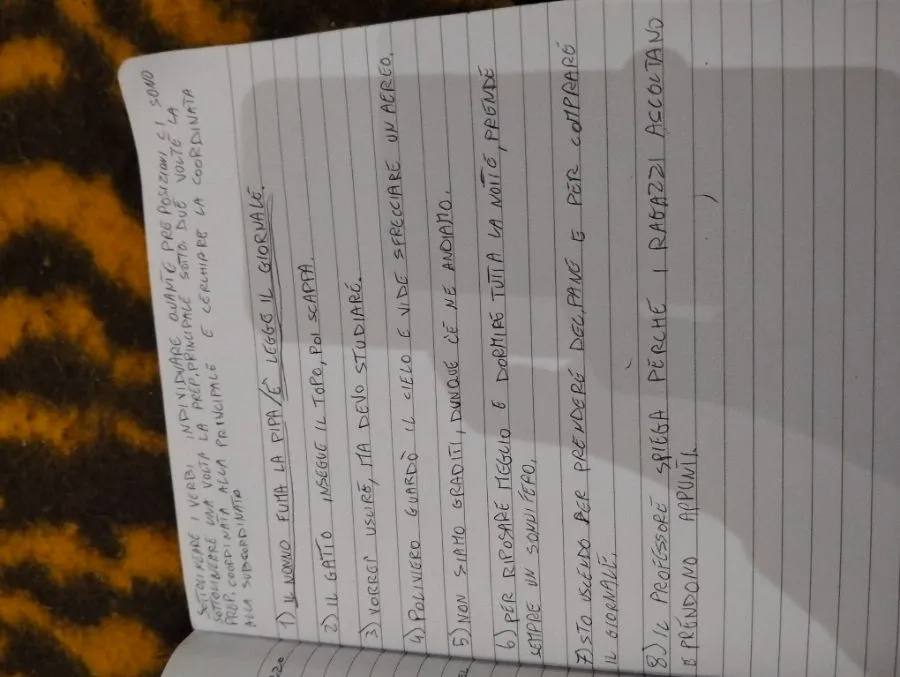 SOTTOLINEARE I VERBI, INDIVIDUARE QUANTE PREPOSIZIONI CI SONO
SOTTOLINEARE UNA VOLTA LA PREP. PRINCIPALE SOTTO. DUE VOLTE LA
PREP. COORDINATA ALLA PRINCIPALE E CERCHIARE LA COORDINATA
ALLA SUBCORDINATO
1) IL NONNO FUMA LA PIPA/E LEGGE IL GIORNALE.
2) IL GATTO INSEGUE IL TOPO, POI SCAPPA.
3) VORREI USCIRE, MA DEVO STUDIARE.
4) POLIVIERO GUARDÒ IL CIELO E VIDE SFRECCIARE UN AEREO.
5) NON SIAMO GRADITI, DUNQUE CE NE ANDIAMO.
6) PER RIPOSARE MEGLIO E DORMIRE TUTTA LA NOTTE, PRENDE
SEMPRE UN SONNIFERO.
7) STO USCENDO PER PRENDERE DEL PANE E PER COMPRARE
IL GIORNALE.
8) IL PROFESSORE SPIEGA PERCHE I RAGAZZI ASCOLTANO
E PRENDONO APPUNTI.